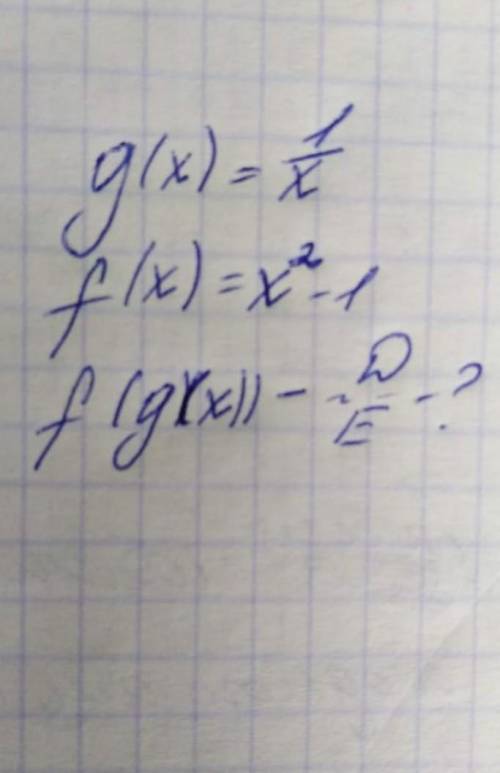 g(x) = 1/x
f(x) = x² - 1
f(g(x)) - D/E - ?